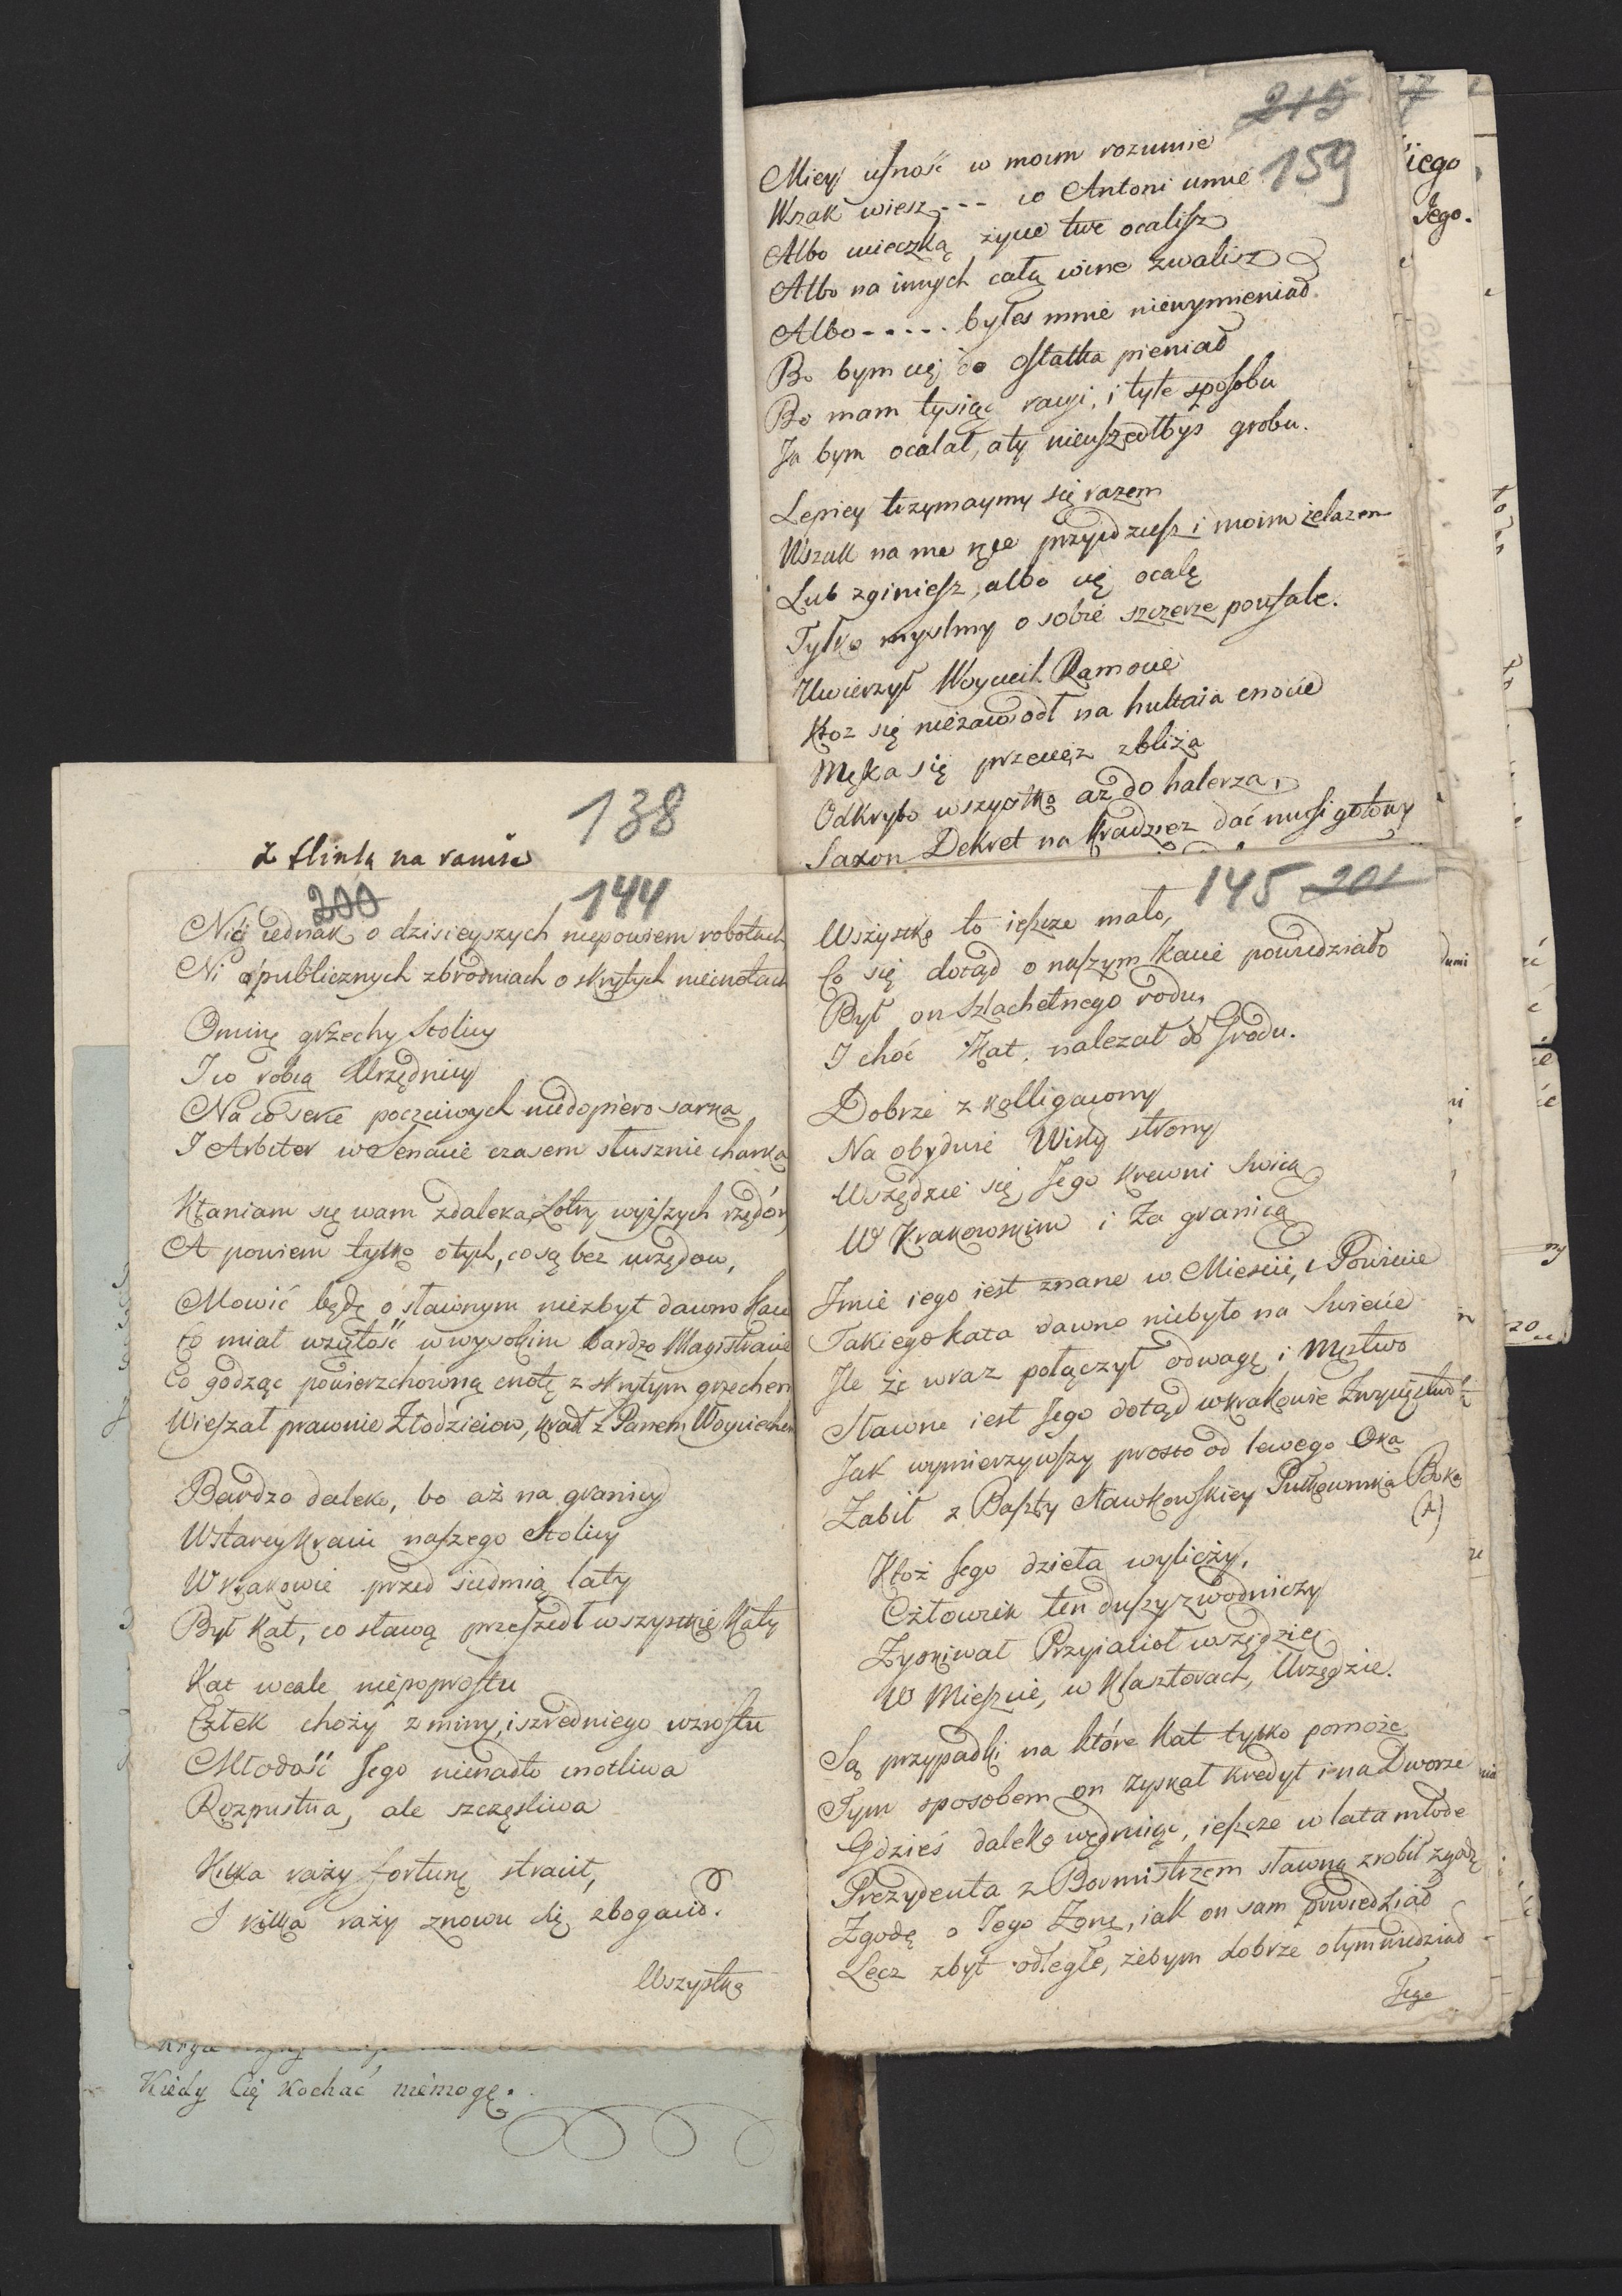 215
159
Miey ufność w moim rozumie
Wszak wiesz - - - co Antoni umie
Albo ucieczką życie twe ocalisz
Albo na innych całą winę zwalisz
Albo - - - - - byłes mnie niewymieniał.
Bo bym cię do ostatka pieniał
Bo mam tysiąc racyi, i tyle sposobu
Ja bym ocalał, a ty nieuszedłbys grobu.
Lepiey trzymaymy się razem
Wszak na me ręce przyidziesz i moim żelazem
Lub zginiesz, albo cię ocalę
Tylko myslmy o sobie szczerze poufale.
Uwierzył Woyciech Ramocie
Ktoz się niezawiodł na hultaia cnocie
Męka się przecięz zbliża
Odkryto wszystko aż do halerza,
Saxon Dekret na kradzież dać musi gotowy
iego
Jego.
138
z flintą na ramie
200
144
Nic iednak o dzisieyszych niepowiem robotach
Ni o publicznych zbrodniach o skrytych niecnotach
Ominę grzechy Stolicy
I co robią Urzędnicy
Na co serce poczciwych niedopiero sarka
I Arbiter w Senacie czasem słusznie charka
Kłaniam się wam zdaleka Łotry wyższych rzędów
A powiem tylko o tych, co są bez urzędow,
Mowić będę o sławnym niezbyt dawno Kacie
Co miał wziętość w wysokim bardzo Magistracie
Co godząc powierzchowną cnotę z skrytym grzechem
Wieszał prawnie Złodzieiow, kradł z Panem Woyciechem
Bardzo daleko, bo aż na granicy
W starey kraiu naszego Stolicy
W Krakowie przed siedmią laty
Był Kat, co sławą przeszedł wszystkie Katy
Kat wcale niepoprostu
Człek choży z miny, i szredniego wzrostu
Młodość Jego nienadto cnotliwa
Rozpustna, ale szczęsliwa
Kilka razy fortunę stracił,
I kilka razy znowu się zbogacił.
Wszystko
145 201
Wszystko to ieszcze mało,
Co się dotąd o naszym Kacie powiedziało
Był on Szlachetnego rodu,
I choć Kat, nalezał do Grodu.
Dobrze z kolligacony
Na obydwie Wisły strony
Wszędzie się Jego krewni swiecą
W Krakowskim i za granicą
Imie iego iest znane w Miescie, i Powiecie
Takiego kata dawno niebyło na Swiecie
Ile że wraz połączył odwagę i Męztwo
Sławne iest Jego dotąd w Krakowie Zwycięztwo
Jak wymierzywszy prosto od lewego Oka
Zabił z Baszty Sławkowskiey Pułkownika Boka
(A)
Ktoż Jego dzieła wyliczy,
Człowiek ten duszy zwodniczy
Zyskiwał Przyiaciot wszędzie
W Mieszcie, w Klasztorach, Urzędzie.
Są przypadki na które Kat tylko pomoże
Tym sposobem on zyskał kredyt i na Dworze
Gdzieś daleko wędruiąc, ieszcze w lata młode
Prezydenta z Bormistrzem sławną zrobił zgodę
Zgodę o Jego Żonę, iak on sam powiedział
Lecz zbyt odległe, żebym dobrze o tym wiedział
Jego
Kiedy Cię kochać niemogę.